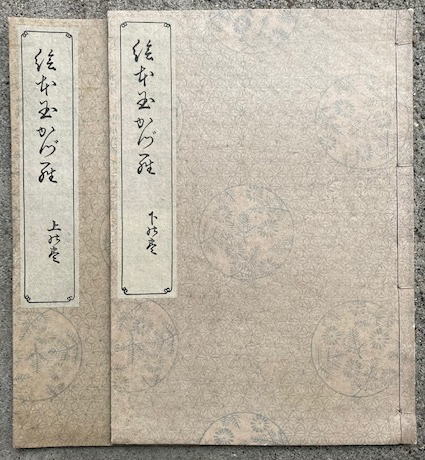 絵本玉かづら
下の巻
絵本玉かづら
上の巻